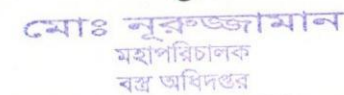 মোঃ নূরুজ্জামান
মহাপরিচালক
বস্ত্র অধিদপ্তর